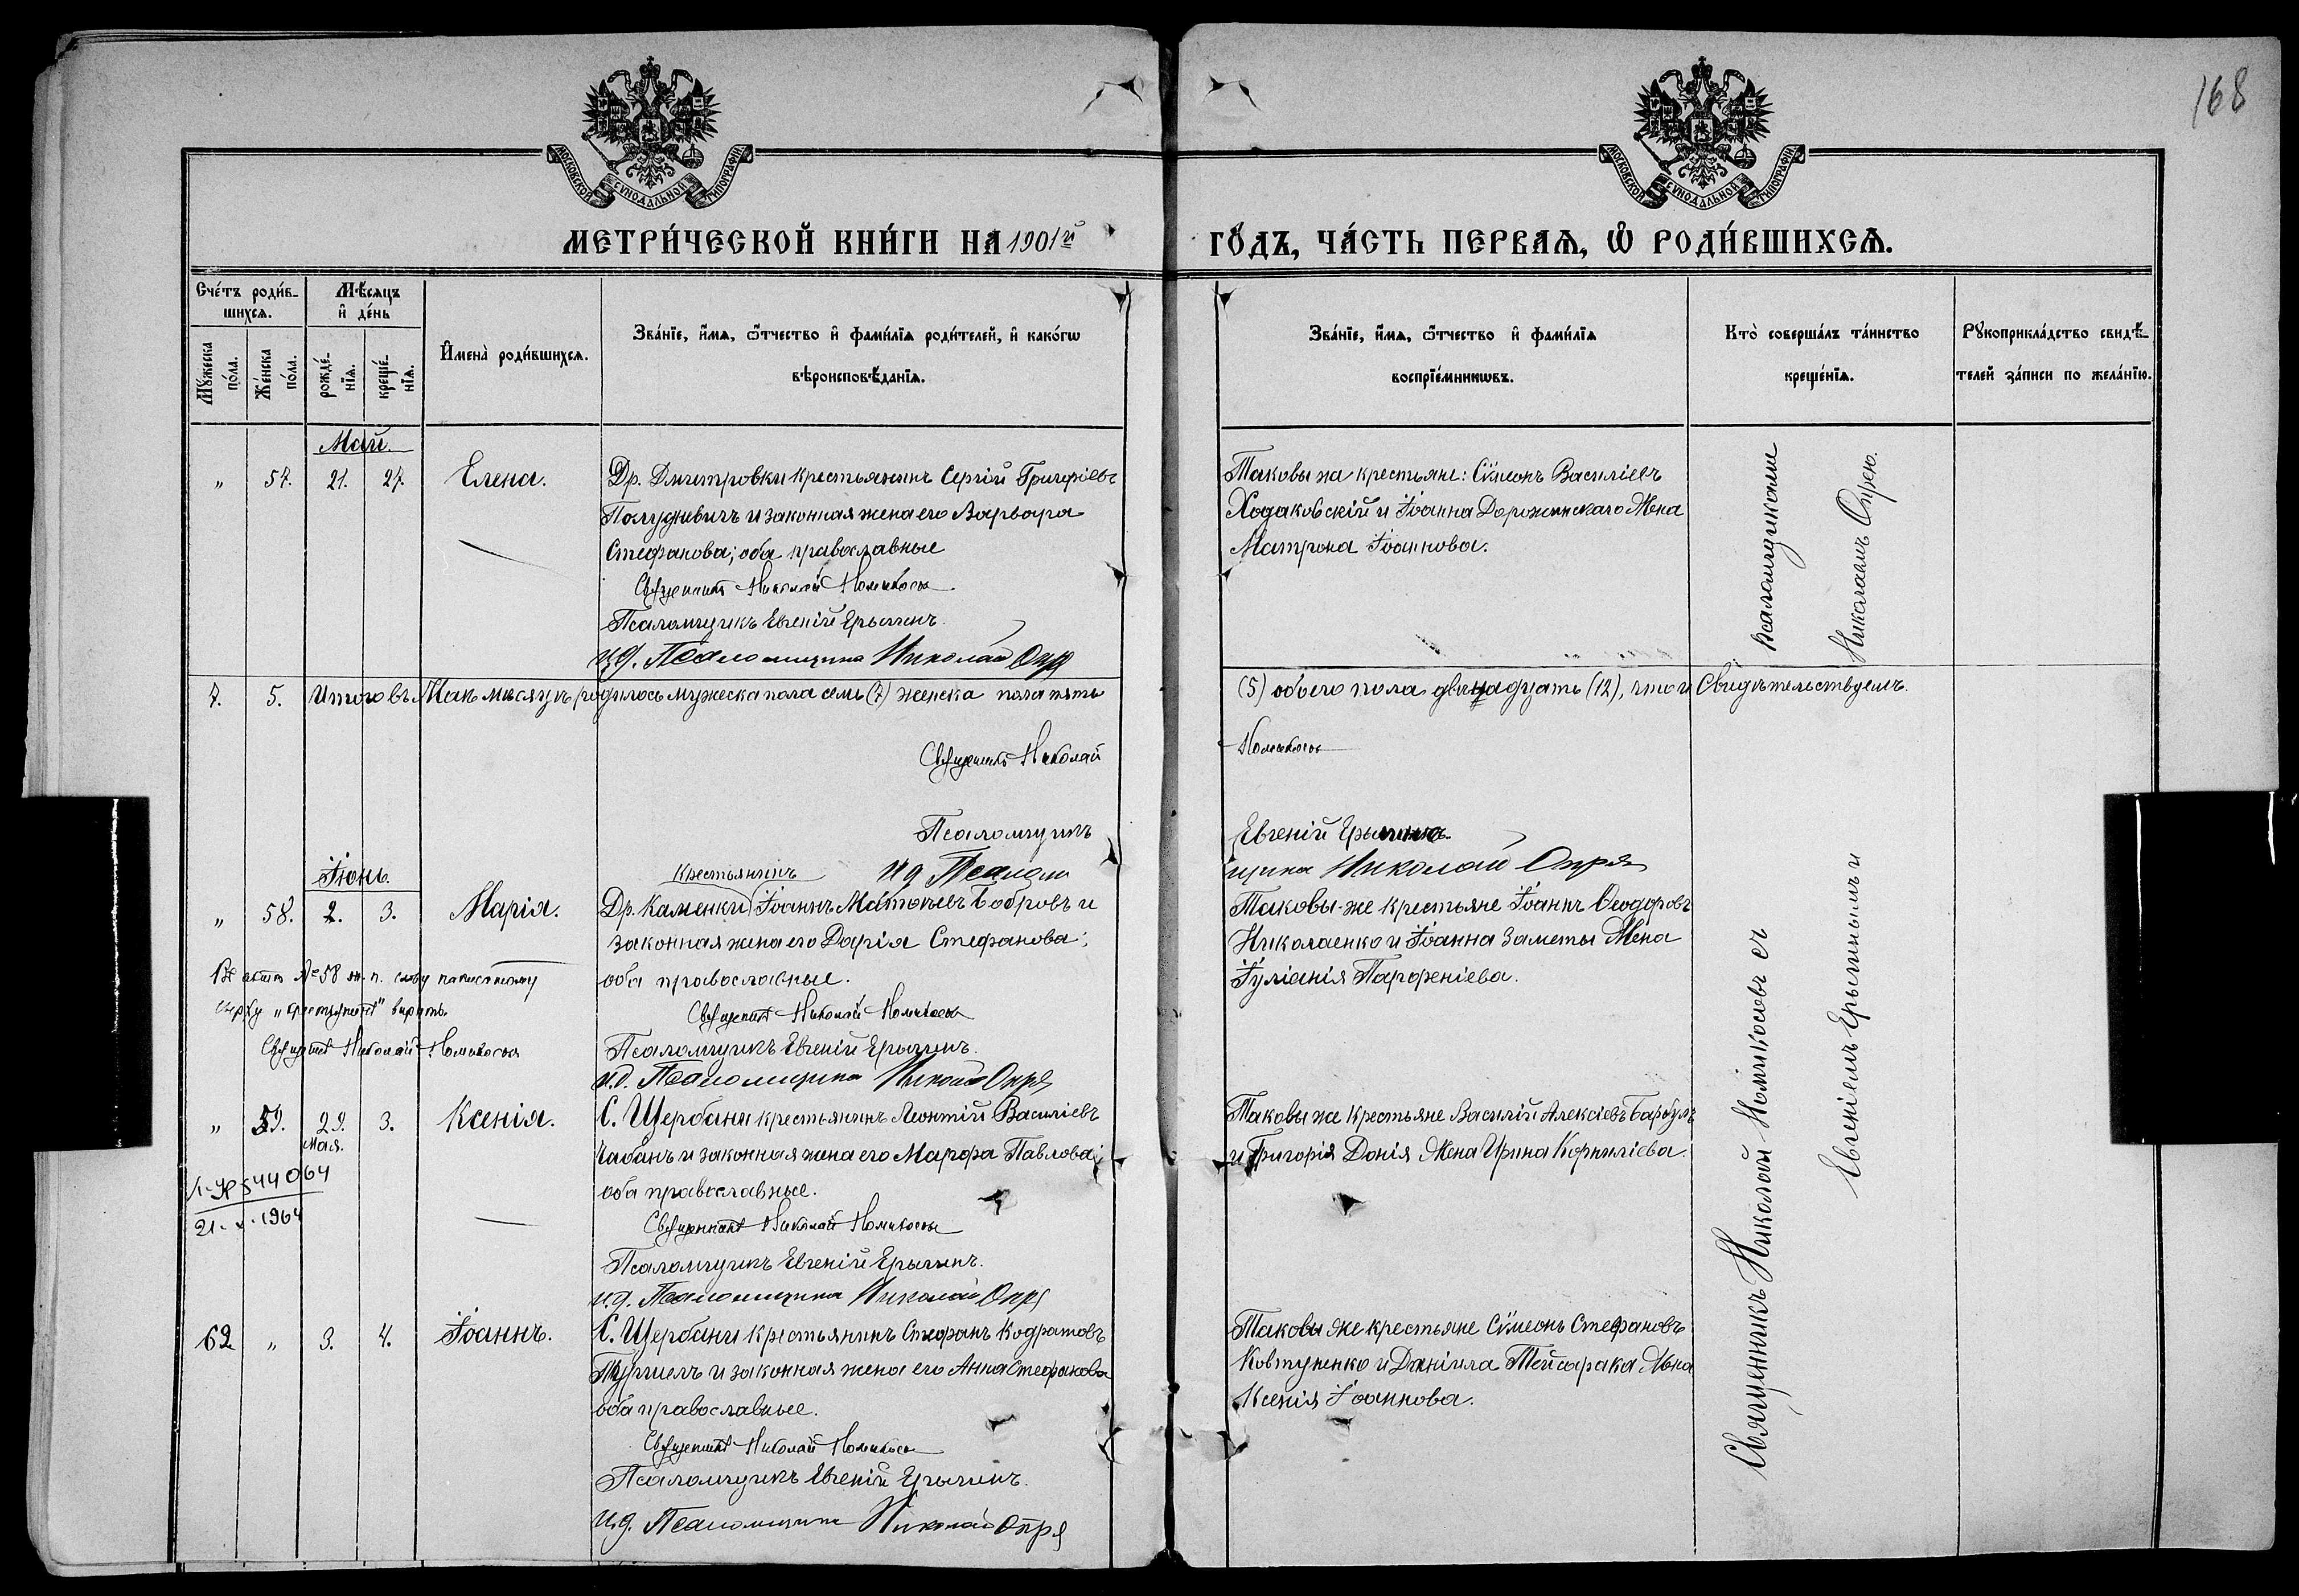 168
МОСКОВСКОЙ СѴНОДАЛЬНОЙ ТИПОГРАФІИ
МОСКОВСКОЙ СѴНОДАЛЬНОЙ ТИПОГРАФІИ
МЕТРИ́ЧЕСКОЙ КНИ́ГИ НА 1901й ГО́ДЪ, ЧА́СТЬ ПЕРВАѦ, Ѡ РОДИ́ВШИХСѦ.
Сче́тъ роди́в-
шихсѧ.
Мꙋ́жеска по́ла.
Же́нска по́ла.
Мѣ́сѧцъ
и҆ де́нь
рожде́-нїѧ.
креще́-нїѧ.
И҆мена̀ роди́вшихсѧ.
Зва́нїе, и҆́мѧ, ѻ҆́тчество и҆ фами́лїѧ роди́телей, и҆ како́гѡ
вѣроисповѣ́данїѧ.
Зва́нїе, и҆́мѧ, ѻ҆́тчество и҆ фами́лїѧ
воспрїе́мникѡвъ.
Кто̀ соверша́лъ та́инство
креще́нїѧ.
Рꙋкоприкла́дство свидѣ́-
телей за́писи по жела́нїю.
Май.
" 57. 21. 27. Елена.
Др. Дмитровки крестьянинъ Сергій Григоріевъ
и законная жена его Варвара
Стефанова; оба православные
Священникъ Николай Номикосов
Псаломщикъ Евгеній Ерыгинъ.
и д. Псаломщика Николай Опря
Таковы же крестьяне: Сѵмеонъ Василіевъ
Ходаковскій и Іоанна Дорожинскаго Жена
Матрона Іоаннова.
Псаломщикомъ
Николаемъ Опрею.
7. 5. Итого въ Маѣ мѣсяцѣ родилось мужеска пола семь (7) женска пола пять
(5) обоего пола двѣнадцать (12), что и Свидѣтельствуемъ.
Священникъ Николай Номикосов
Псаломщикъ Евгеній Ерыгинъ.
и д Псаломщика Николай Опря
Іюнь.
" 58. 2. 3. Марія.
крестьянинъ
Др. Каменки Іоаннъ Матѳѣевъ Бобровъ и
законная жена его Дарія Стефанова;
оба православные.
Священникъ Николай Номикосов
Псаломщикъ Евгеній Ерыгинъ.
и.д. Псаломщика Николай Опря
Таковы-же крестьяне Іоаннъ Ѳеодоровъ
Николаенко и Іоанна Заметы Жена
Іуліанія Парѳеніева.
Въ актѣ № 58 ж. п. слову написанному
сверху "крестьянинъ" вѣрить.
Священникъ Николай Номикосов
" 59. 29. Мая. 3. Ксенія.
С. Щербани крестьянинъ Леонтій Василіевъ
Чабанъ и законная жена его Марфа Павлова;
оба православные.
Священникъ Николай Номикосов
Псаломщикъ Евгеній Ерыгинъ.
и.д. Псаломщика Николай Опря
Таковы же крестьяне Василій Алексіевъ Барбулъ
и Григорія Донія Жена Ирина Корниліева.
544064
21-X-1964
62 " 3. 4. Іоаннъ.
С. Щербани крестьянинъ Стефанъ Кодратовъ
и законная жена его Анна Стефанова
оба православные.
Священникъ Николай Номикосов
Псаломщикъ Евгеній Ерыгинъ.
и.д. Псаломщика Николай Опря
Таковы же крестьяне Сѵмеонъ Стефановъ
Ковтуненко и Даніила Жена
Ксенія Іоаннова.
Священникъ Николай Номикосовъ съ
Евгеніемъ Ерыгинымъ и